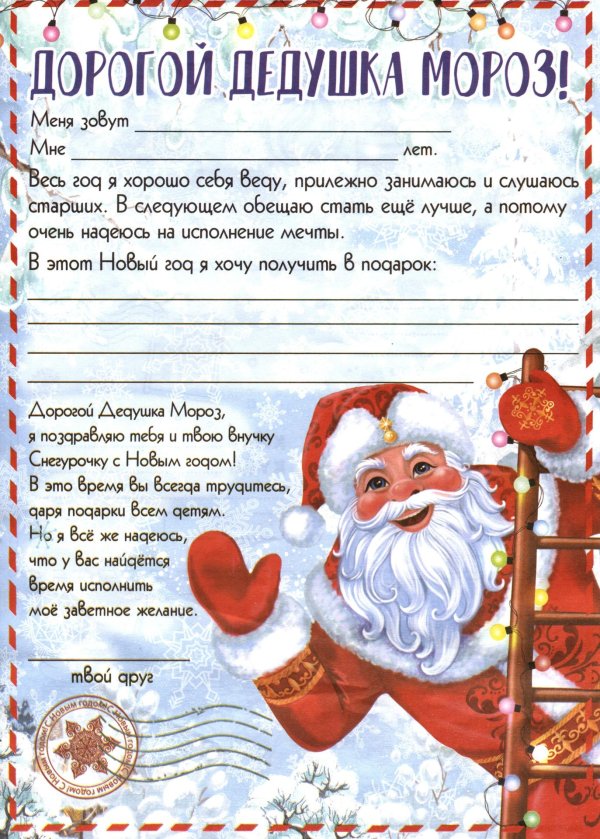 ДОРОГОЙ ДЕДУШКА МОРОЗ!
Меня зовут
Мне лет.
Весь год я хорошо себя веду, прилежно занимаюсь и слушаюсь
старших. В следующем обещаю стать ещё лучше, а потому
очень надеюсь на исполнение мечты.
В этот Новый год я хочу получить в подарок:
Дорогой Дедушка Мороз,
я поздравляю тебя и твою внучку
Снегурочку с Новым годом!
В это время вы всегда трудитесь,
даря подарки всем детям.
Но я всё же надеюсь,
что у вас найдётся
время исполнить
моё заветное желание.
твой друг
С Новым годом! С Новым годом! С Новым годом!